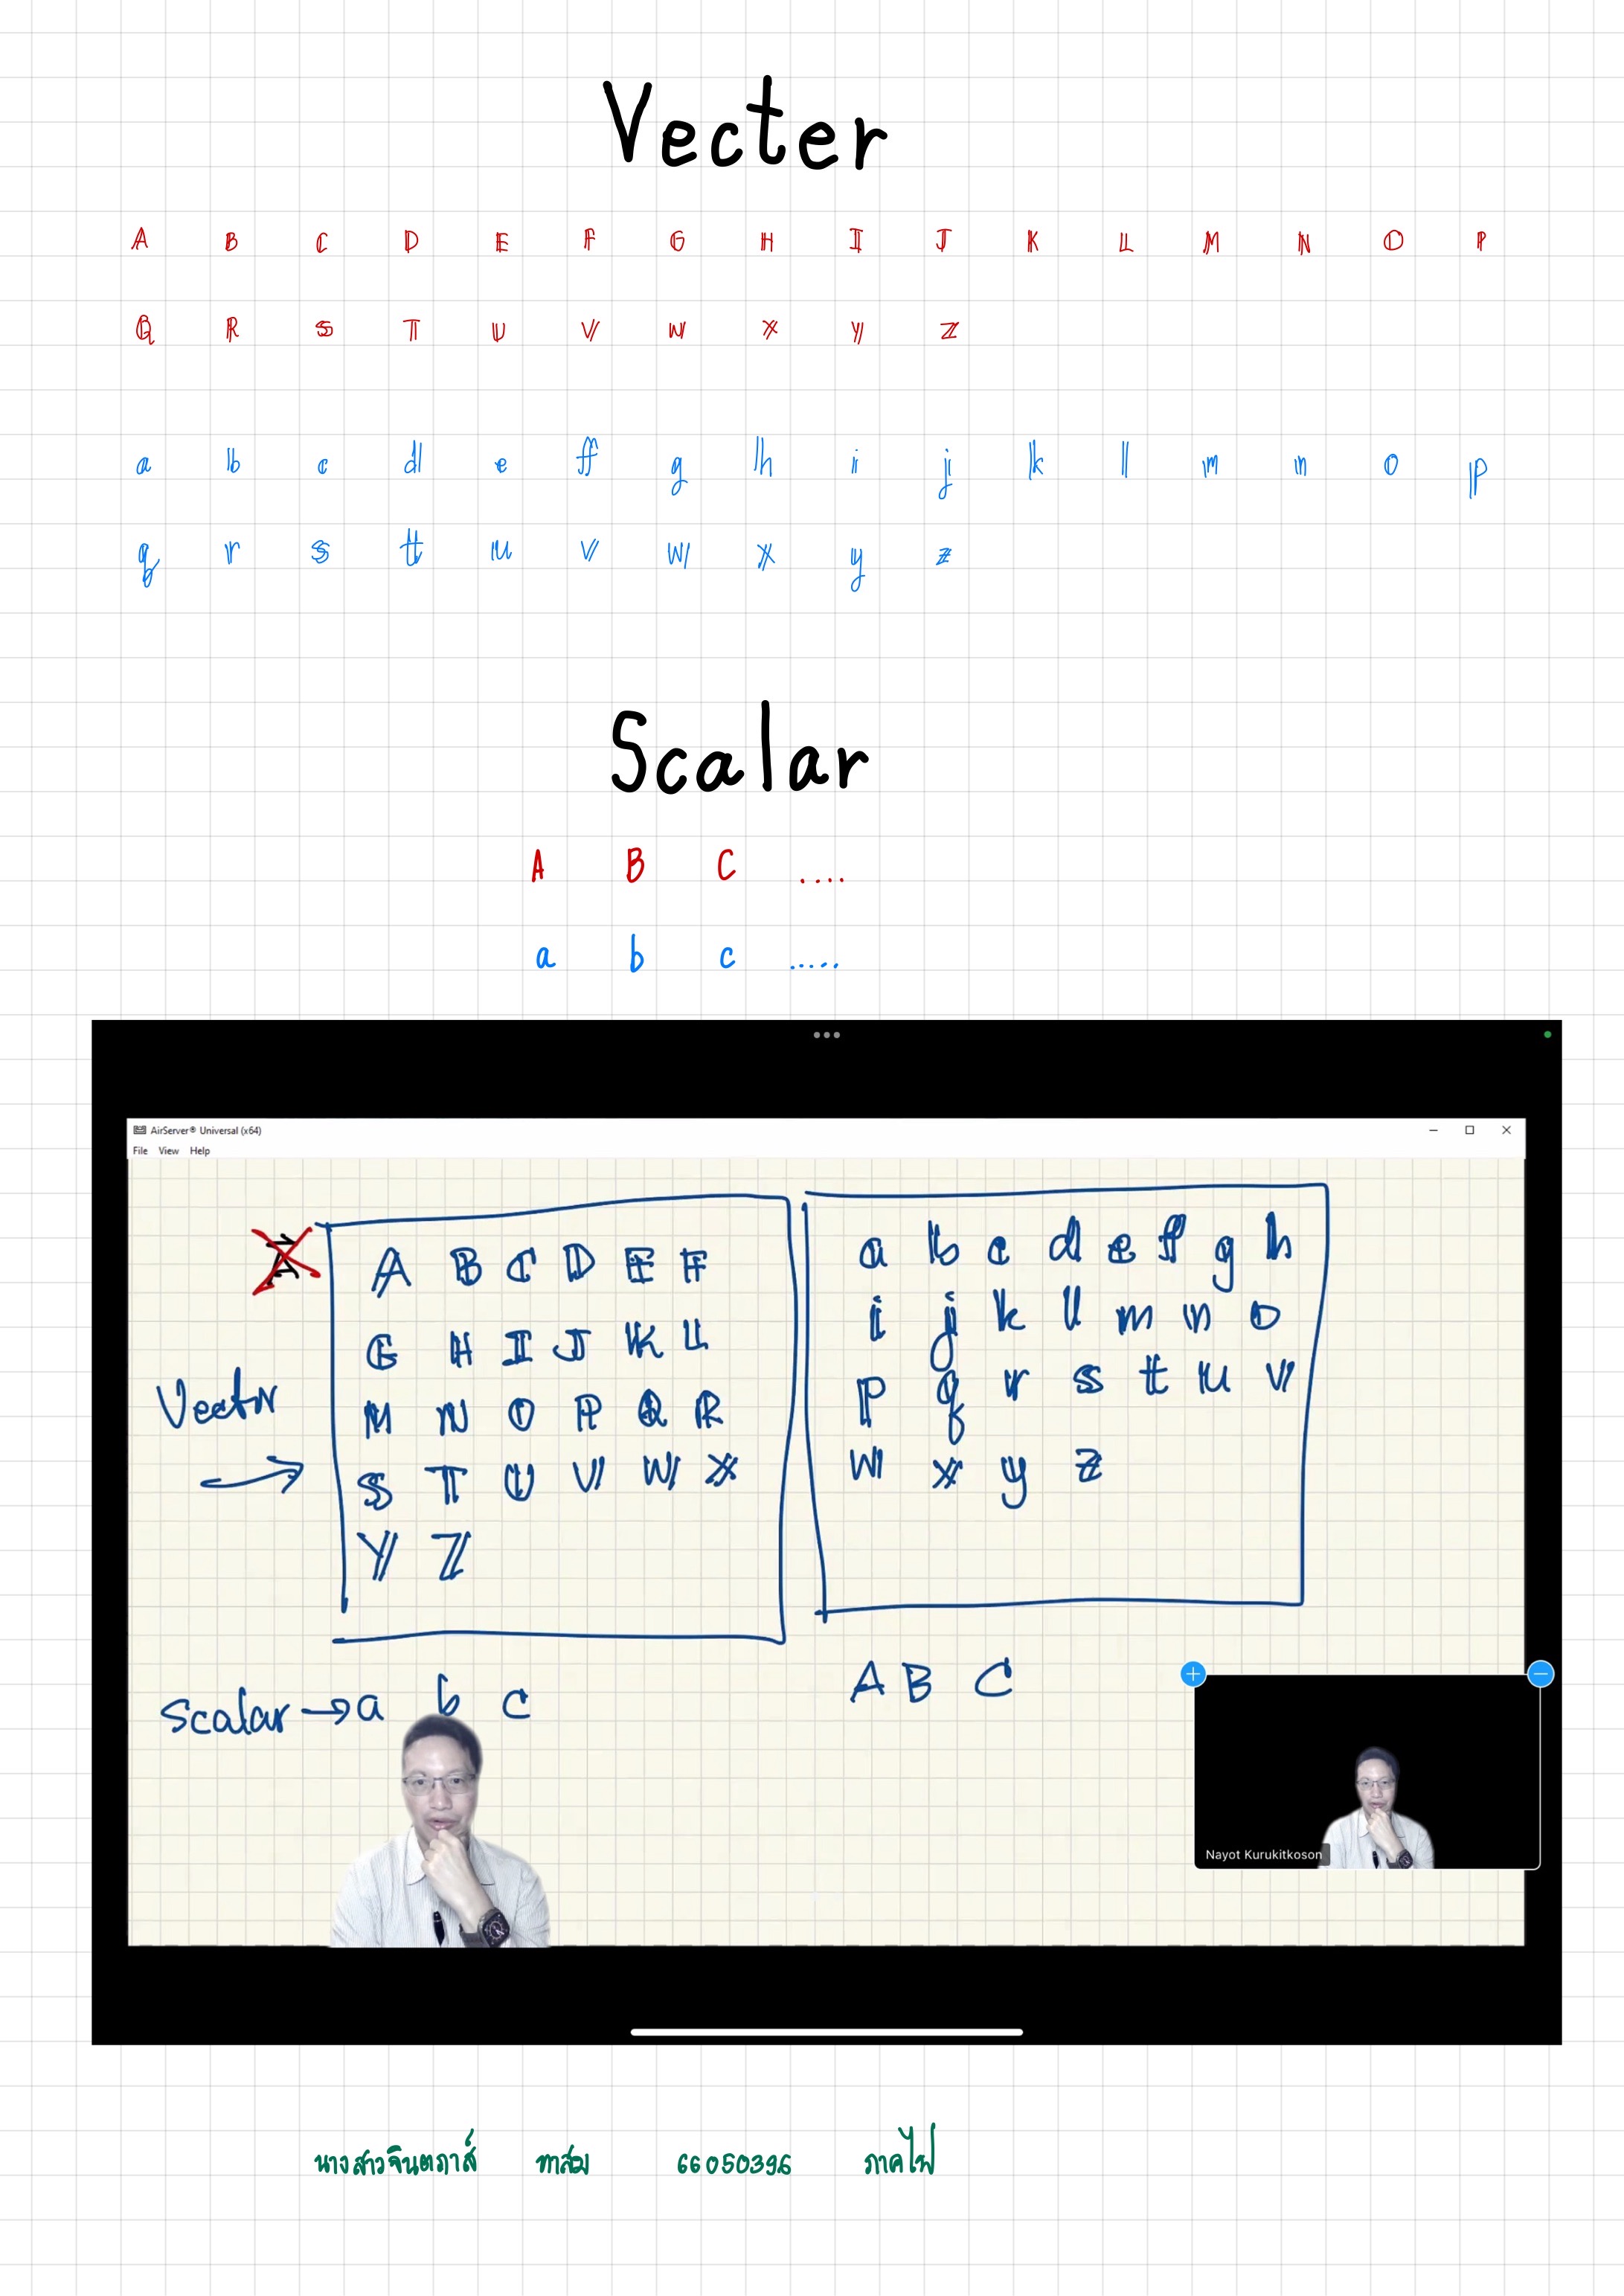 Vecter
A B C D E F G H I J K L M N O P
Q R S T U V W X Y Z
a b c d e f g h i j k l m n o p
q r s t u v w x y z
Scalar
A B C ....
a b c .....
AirServer® Universal (x64)
File View Help
A
A B C D E F
G H I J K L
M N O P Q R
S T U V W X
Y Z
Vector →
a b c d e f g h
i j k l m n o
p q r s t u v
w x y z
Scalar → a b c
A B C
Nayot Kurukitkoson
นางสาวจินตภาส์ 66050396 ภาคไฟ